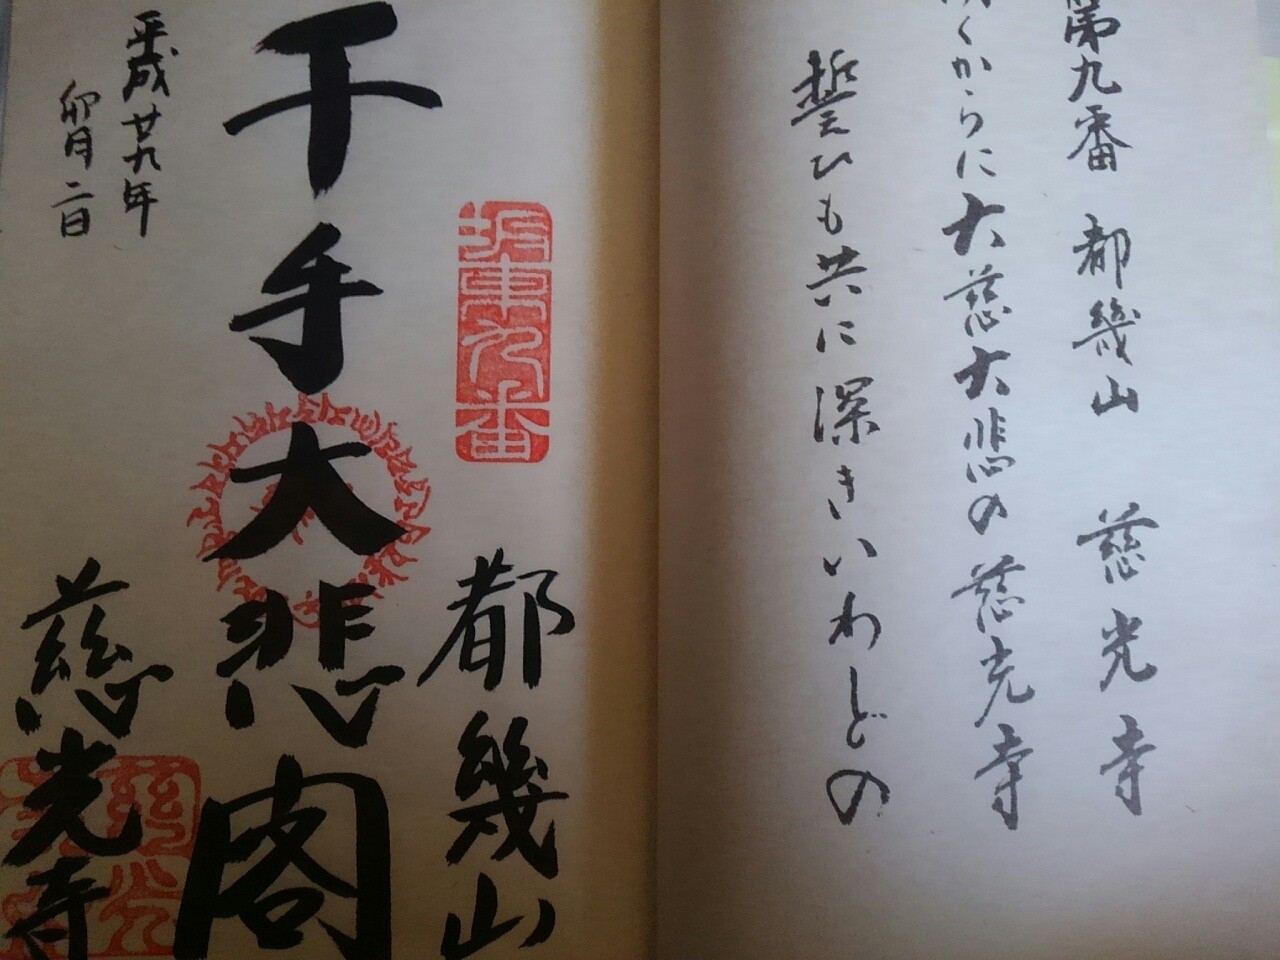 第九番 都幾山 慈光寺
くからに大慈大悲の慈光寺
誓ひも共に深きいわどの
坂東九番
都幾山
千手大悲閣
慈光寺
平成廿九年
卯月二日